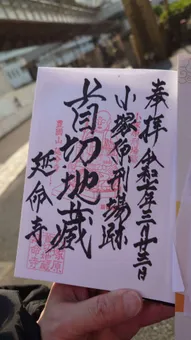 奉拝
令和七年三月廿三日
小塚原刑場跡
首切地蔵
延命寺